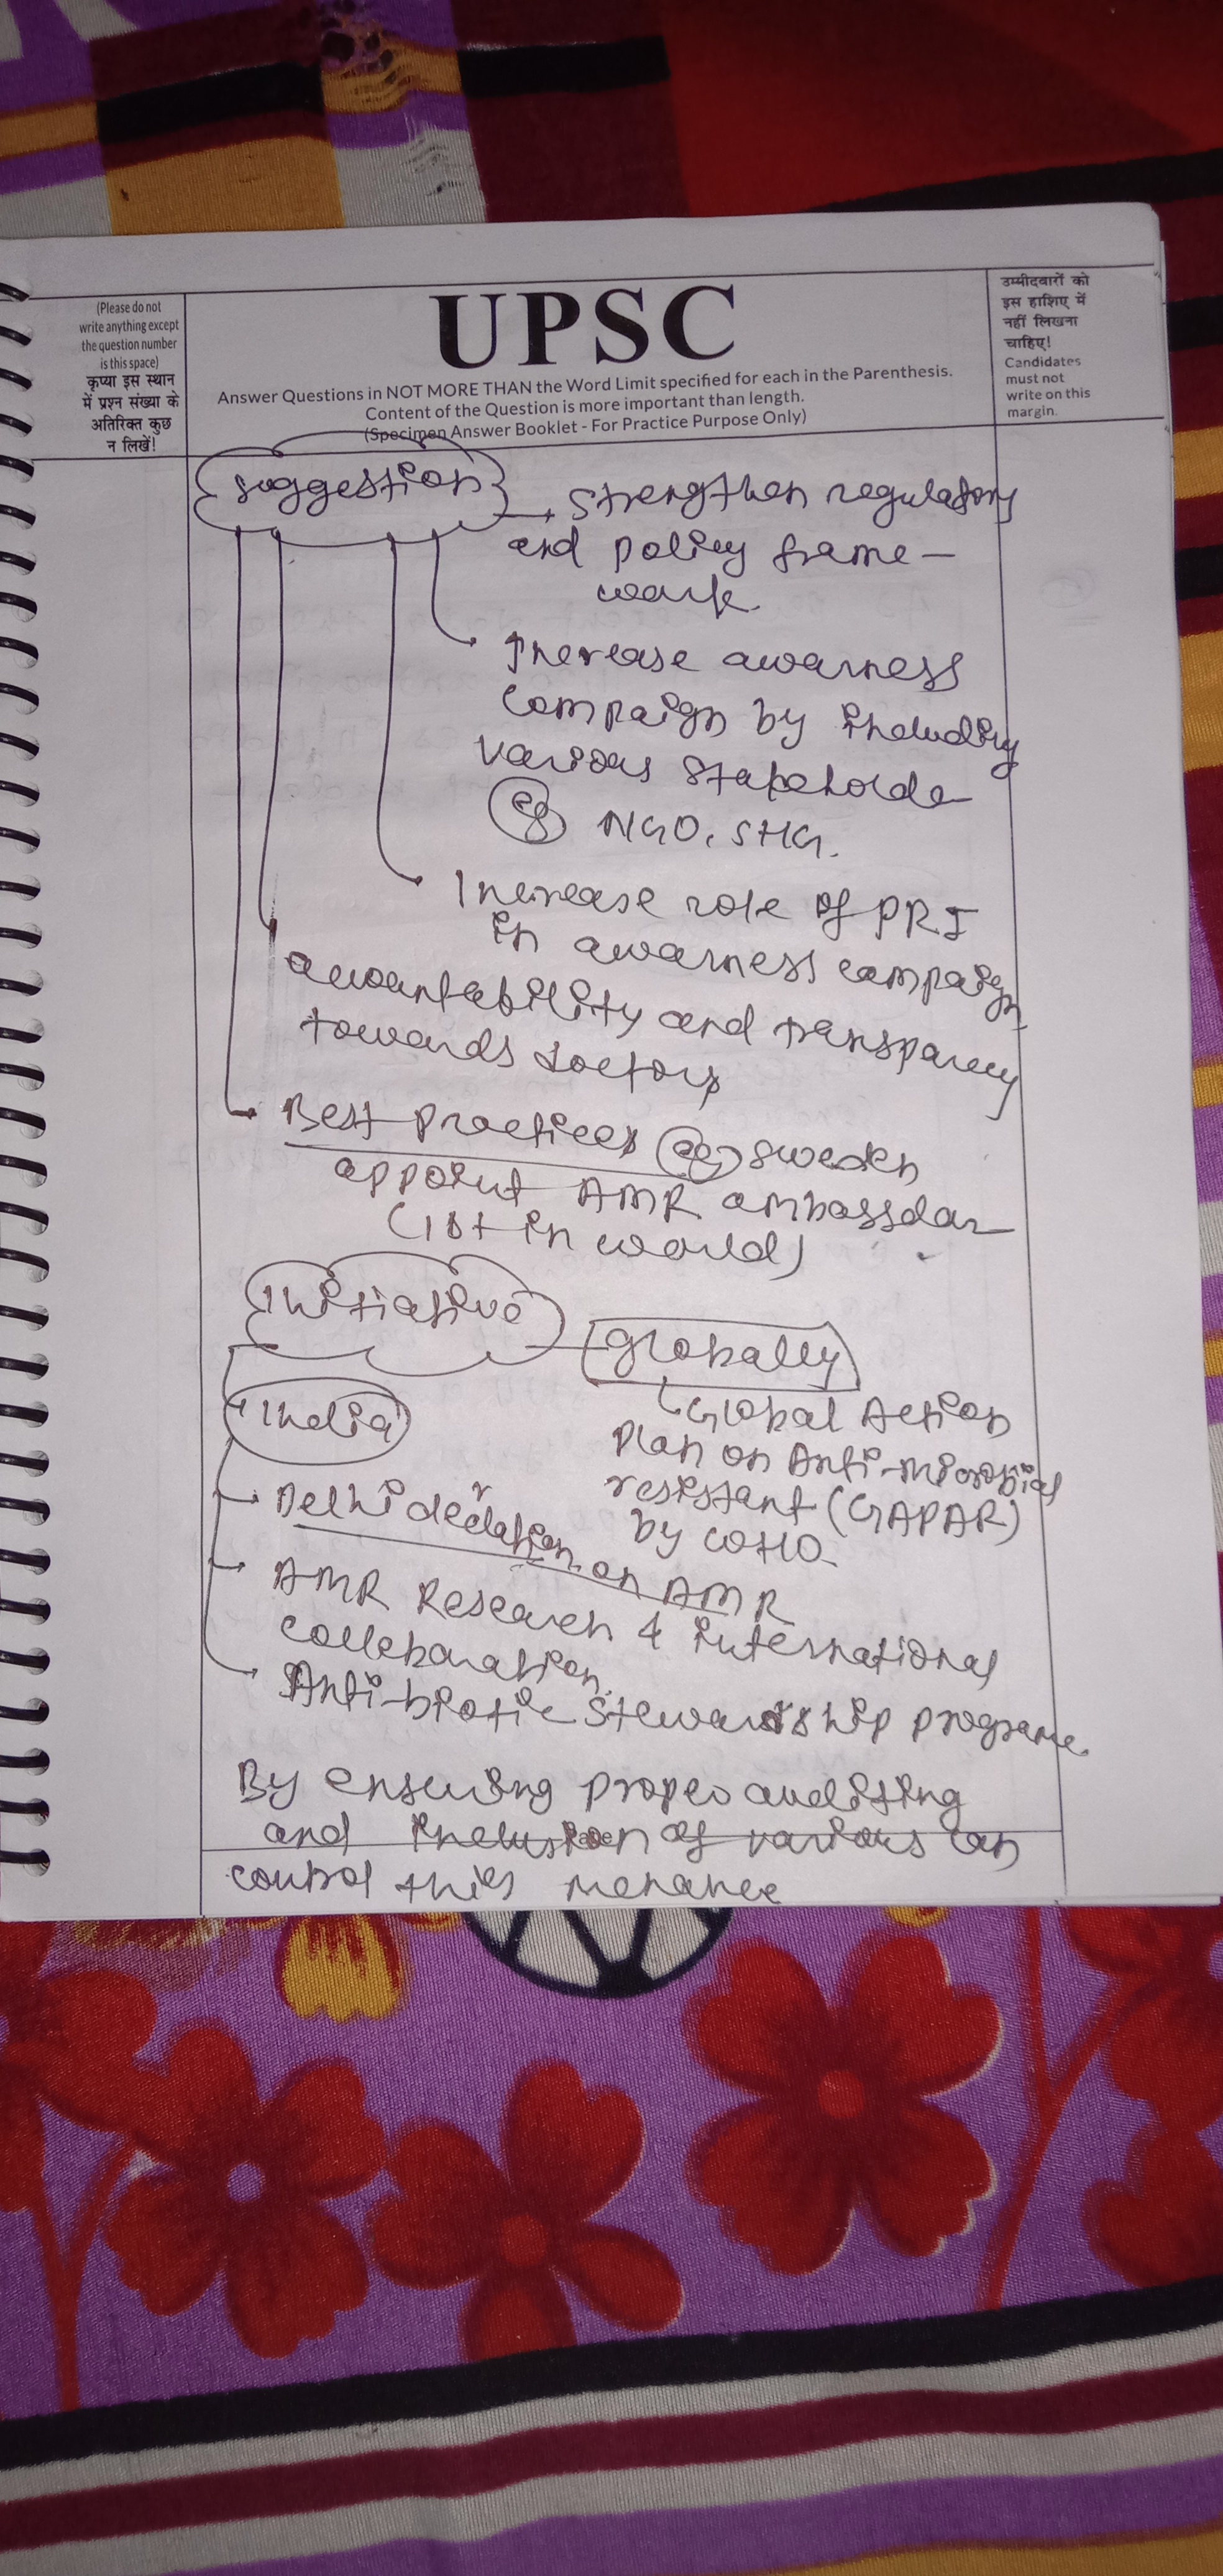 (Please do not
write anything except
the question number
is this space)
कृप्या इस स्थान
में प्रश्न संख्या के
अतिरिक्त कुछ
न लिखें!
UPSC
Answer Questions in NOT MORE THAN the Word Limit specified for each in the Parenthesis.
Content of the Question is more important than length.
(Specimen Answer Booklet - For Practice Purpose Only)
उम्मीदवारों को
इस हाशिए में
नहीं लिखना
चाहिए!
Candidates
must not
write on this
margin.
Suggestion
Strengthen regulatory
and policy frame-
work.
Increase awarness
Campaign by including
various stakeholde
eg NGO, SHG.
Increase role of PRI
in awarness campaign
accountability and transparency
towards doctors
Best practices eg Sweden
appoint AMR ambassdar
(1st in world)
Initiative
globally
Global Action
Plan on Anti-microbial
resistant (GAPAR)
by WHO
India
Delhi declation on AMR
AMR Research & international
collaboration.
Anti-biotic Stewardship programe.
By ensuring proper auditing
and inclusion of various can
control this menance